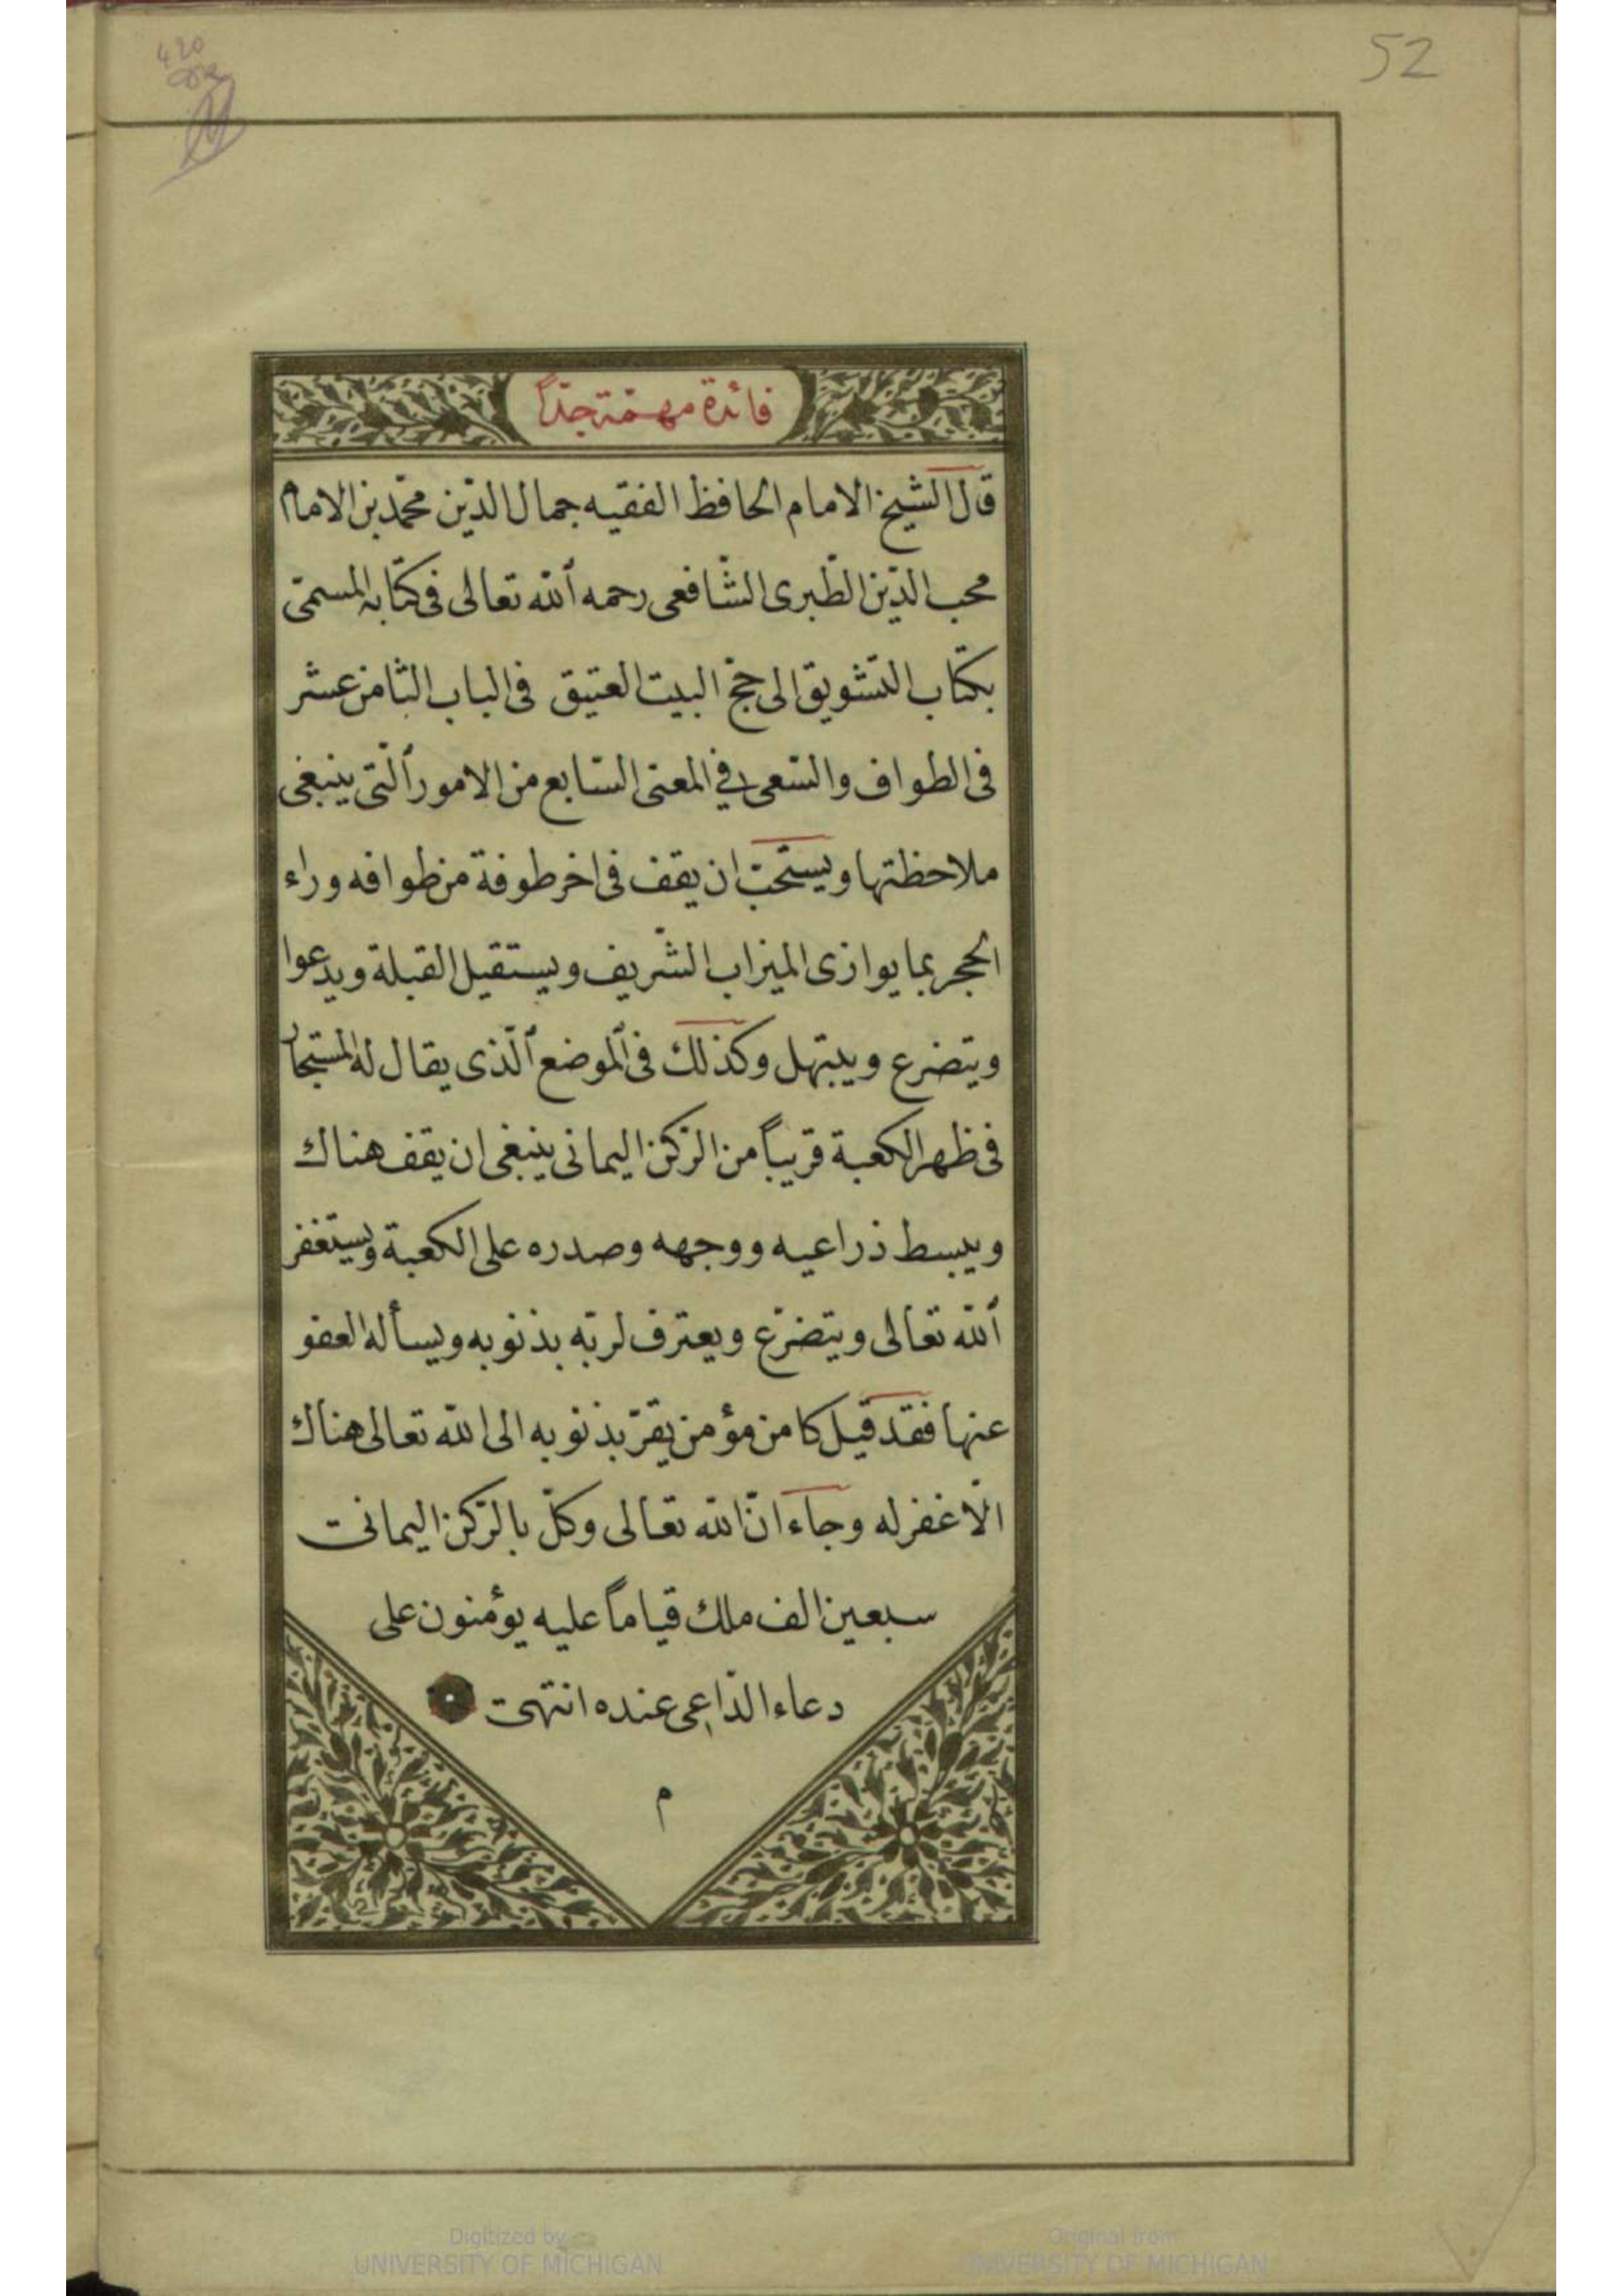 52
420
فائدة مهمّة جدّاً
قال الشيخ الامام الحافظ الفقيه جمال الدّين محمّد بن الامام
محب الدّين الطّبرى الشّافعى رحمه ٱلله تعالى فى كتابه المسمّى
بكتاب التشويق الى حجّ البيت العتيق فى الباب الثامن عشر
فى الطواف والسّعى فى المعنى السّابع من الامور ٱلّتى ينبغى
ملاحظتها ويستحبّ ان يقف فى اخر طوفة من طوافه وراء
الحجر بما يوازى الميزاب الشّريف ويستقبل القبلة ويدعوا
ويتضرع ويبتهل وكذلك فى ٱلموضع ٱلّذى يقال له المستجار
فى ظهر الكعبة قريباً من الرّكن اليمانى ينبغى ان يقف هناك
ويبسط ذراعيه ووجهه وصدره على الكعبة ويستغفر
ٱلله تعالى ويتضرّع ويعترف لربّه بذنوبه ويسأله العفو
عنها فقد قيل ما من مؤمن يقرّ بذنوبه الى الله تعالى هناك
الّا غفر له وجاء انّ الله تعالى وكّل بالرّكن اليمانى
سبعين الف ملك قياماً عليه يؤمنون على
دعاء الدّاعى عنده انتهى
م
Digitized by
UNIVERSITY OF MICHIGAN
Original from
UNIVERSITY OF MICHIGAN